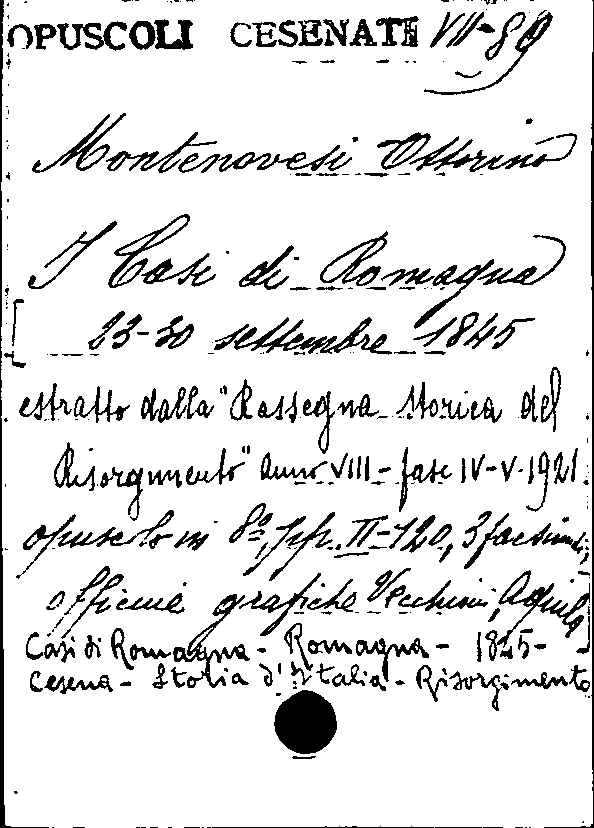 OPUSCOLI CESENATI VII-89
Montenovesi Ottorino
I Casi di Romagna
[23-30 settembre 1845
estratto dalla "Rassegna storica del
Risorgimento" anno VIII - fasc IV-V. 1921.
opuscolo in 8º, pp. II-120, 3 facsimili,
officine grafiche Vecchioni, Aquila]
Casi di Romagna - Romagna - 1845 -
Cesena - Storia d'Italia - Risorgimento